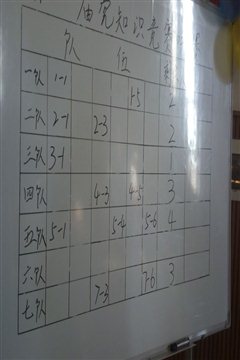 届完知识竞赛
队 位
一队 1-1 1-5 2
二队 2-1 2-3 2
三队 3-1 1
四队 4-3 4-5 3
五队 5-1 5-4 5-6 4
六队
七队 7-3 7-6 3